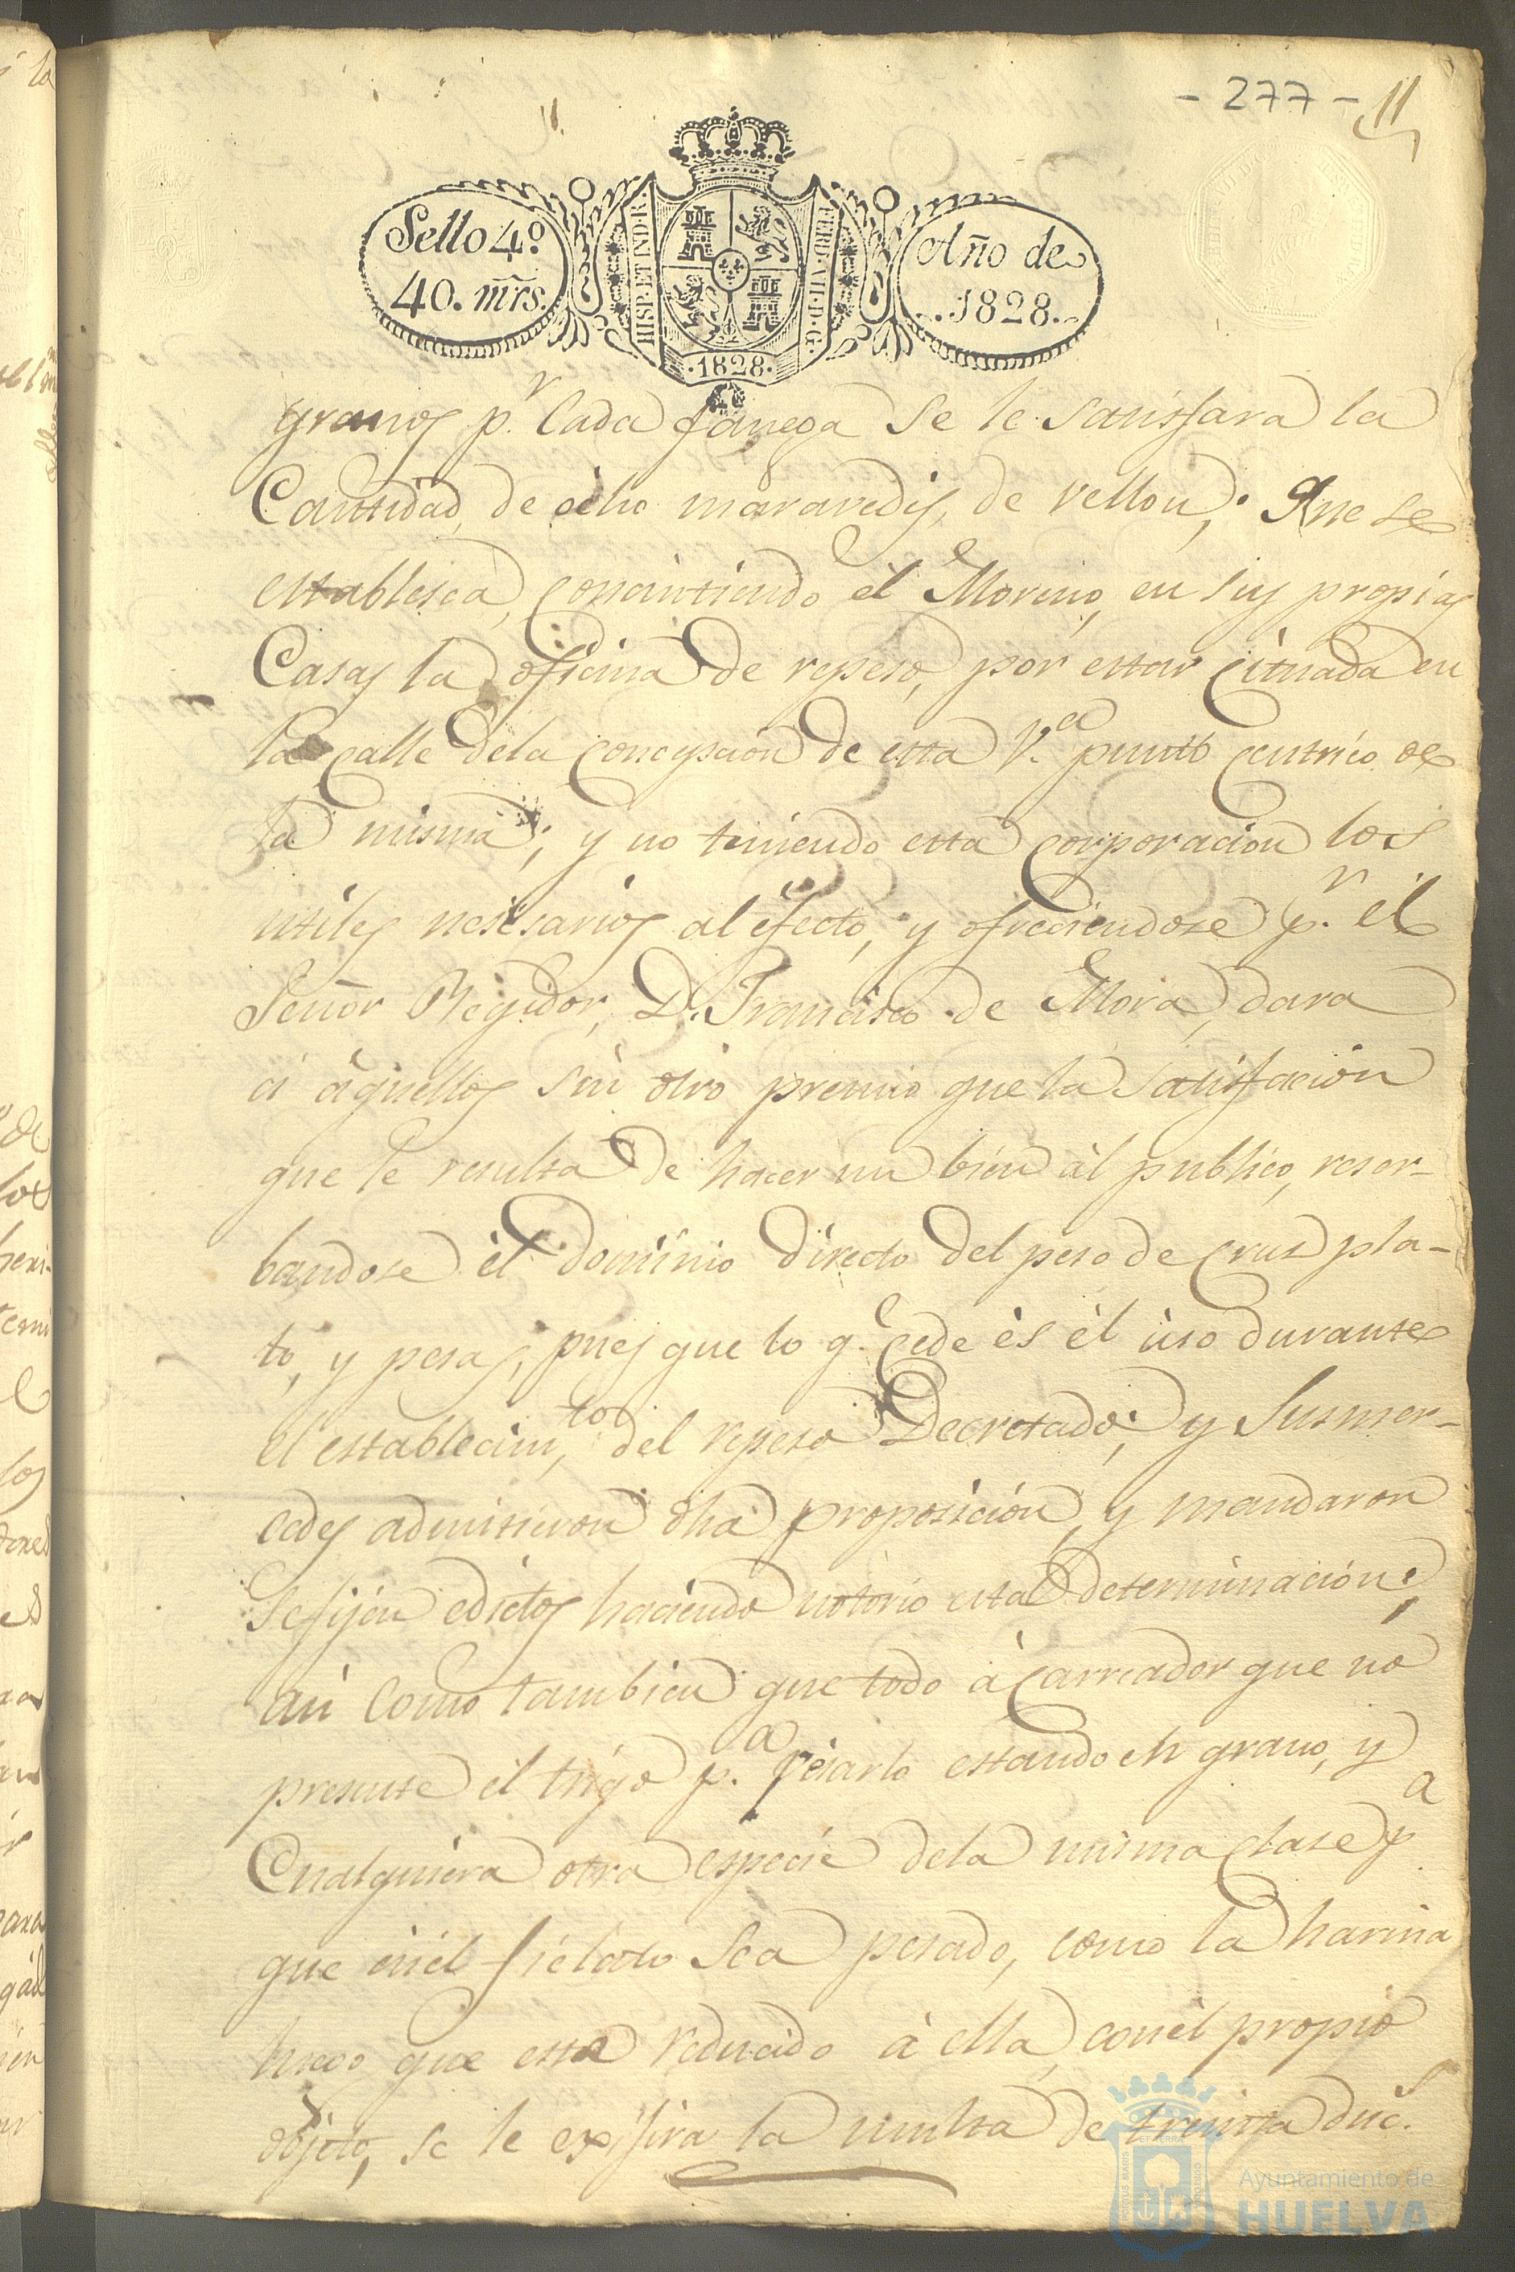 - 277 - 11
11.
Sello 4.º
40. mrs.
HISP. ET IND. R.
FERD. VII. D. G.
·1828·
Año de
..1828..
granos p.r Cada fanega se le satisfara la
Cantidad de ocho maravedis, de vellon; Que se
establesca, concintiendo el Moreno, en sus propias
Casas la oficina de repeso, por estar cituada en
la calle dela Concepcion de esta V.a punto centrico de
la misma; y no teniendo esta corporacion los
utiles nesesarios al efecto, y ofreciendose p.r el
Señor Regidor, D. Francisco de Mora, dara
a aquellos sin otro premio que la satisfacion
que le resulta de hacer un bien al publico, reser-
bandose el dominio directo del peso de Crus pla-
to, y pesas, pues que lo q.e cede es el uso durante
el establecim.to del repeso Decretado; y Susmer-
cedes admitieron dha proposición, y mandaron
se fijen edictos haciendo notorio esta determinacion;
asi como tambien que todo acarreador que no
presente el trigo p.a pesarlo estando en grano, y
Cualquiera otra especie dela misma clase p.a
que en el fielato sea pesado, como la harina
luego que este reducido à ella, con el propio
objeto, se le exijira la multa de treinta duc.s
Ayuntamiento de
HUELVA